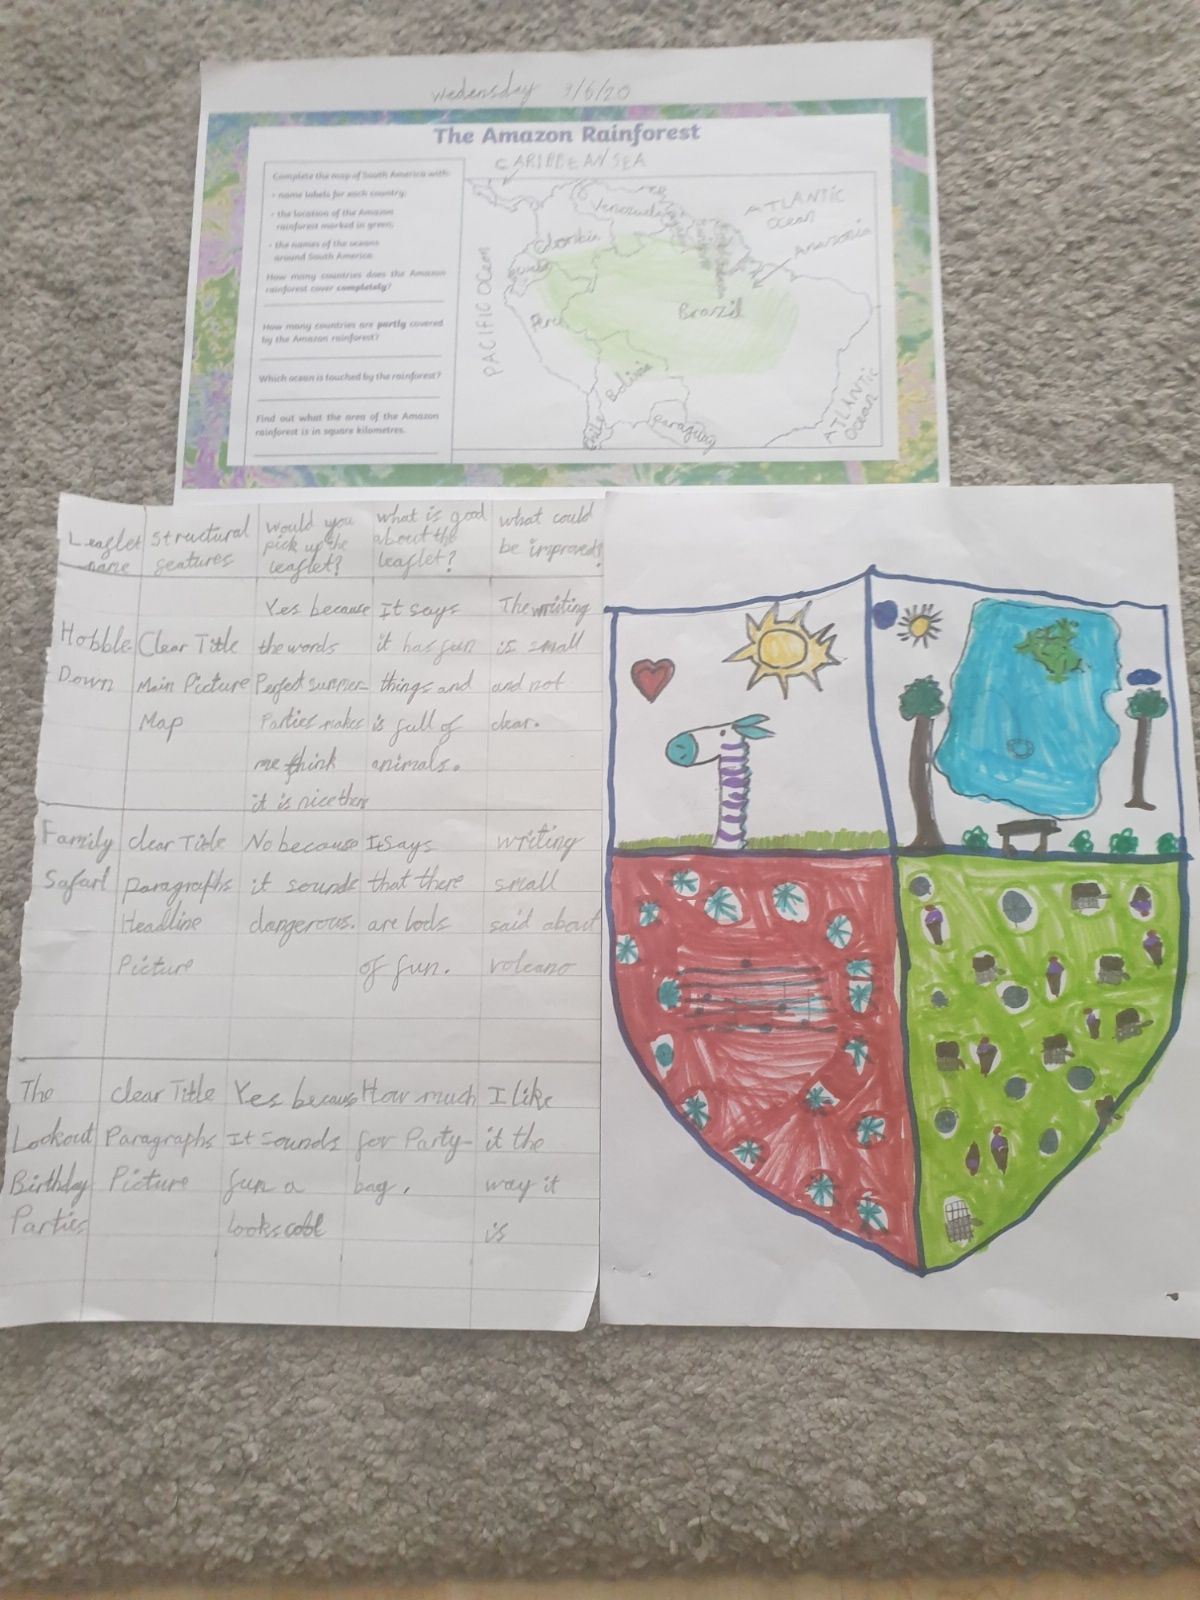 Wedensday 3/6/20
The Amazon Rainforest
Complete the map of South America with:
• name labels for each country;
• the location of the Amazon
rainforest marked in green;
• the names of the oceans
around South America.
How many countries does the Amazon
rainforest cover completely?
How many countries are partly covered
by the Amazon rainforest?
Which ocean is touched by the rainforest?
Find out what the area of the Amazon
rainforest is in square kilometres.
CARIBBEAN SEA
Venezuela
ATLANTIC
Ocean
Amazonia
PACIFIC OCean
Brazil
Peru
Bolivia
Chile
Paraguay
ATLANTIC
Ocean
Leaflet name
Structural features
would you
pick up the
leaflet?
what is good
about the
leaflet?
what could
be improved?
Hobble
Down
Clear Title
Main Picture
Map
Yes because
the words
Perfect summer
Parties makes
me think
it is nice there
It says
it has fun
things and
is full of
animals.
The writing
is small
and not
clear.
Family
Safari
clear Title
paragraphs
Headline
Picture
No because
it sounds
dangerous.
It says
that there
are lods
of fun.
writing
small
said about
volcano
The
Lookout
Birthday
Parties
clear Title
Paragraphs
Picture
Yes becaus
It sounds
fun a
looks cool
How much
for Party-
bag.
I like
it the
way it
is